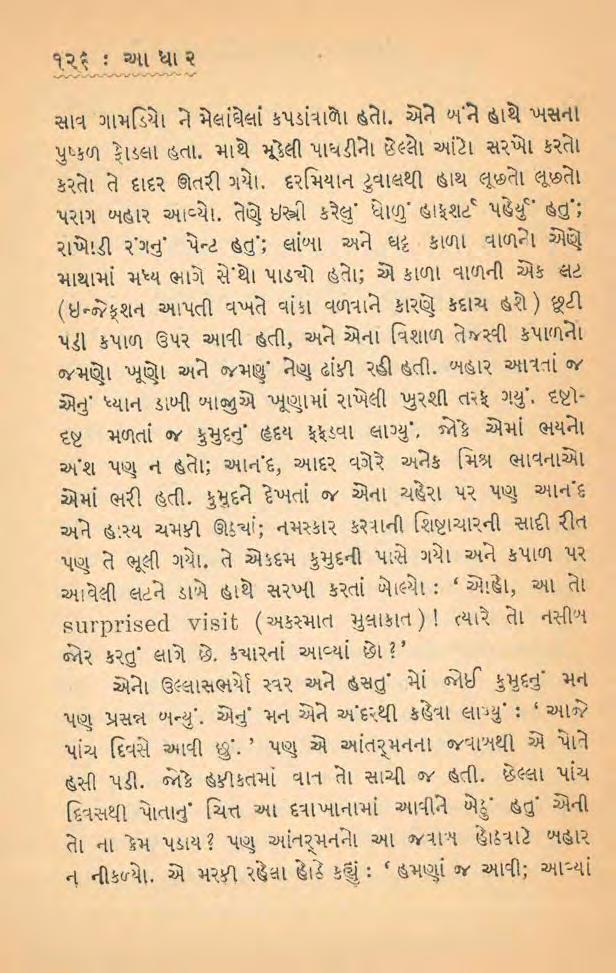 ૧૨૬ : આ ધા ર
સાવ ગામડિયો ને મેલાંઘેલાં કપડાંવાળો હતો. એને બંને હાથે ખસના
પુષ્કળ ફોડલા હતા. માથે મૂકેલી પાઘડીનો છેલ્લો આંટો સરખો કરતો
કરતો તે દાદર ઊતરી ગયો. દરમિયાન ટુવાલથી હાથ લૂછતો લૂછતો
પરાગ બહાર આવ્યો. તેણે ઇસ્ત્રી કરેલું ધોળું હાફશર્ટ પહેર્યું હતું;
રાખોડી રંગનું પેન્ટ હતું; લાંબા અને ઘટ્ટ કાળા વાળનો એણે
માથામાં મધ્ય ભાગે સેંથો પાડ્યો હતો; એ કાળા વાળની એક લટ
(ઇન્જેક્શન આપતી વખતે વાંકા વળવાને કારણે કદાચ હશે) છૂટી
પડી કપાળ ઉપર આવી હતી, અને એના વિશાળ તેજસ્વી કપાળનો
જમણો ખૂણો અને જમણું નેણ ઢાંકી રહી હતી. બહાર આવતાં જ
એનું ધ્યાન ડાબી બાજુએ ખૂણામાં રાખેલી ખુરશી તરફ ગયું. દષ્ટો-
દષ્ટ મળતાં જ કુમુદનું હૃદય ફફડવા લાગ્યું. જોકે એમાં ભયનો
અંશ પણ ન હતો; આનંદ, આદર વગેરે અનેક મિશ્ર ભાવનાઓ
એમાં ભરી હતી. કુમુદને દેખતાં જ એના ચહેરા પર પણ આનંદ
અને હાસ્ય ચમકી ઊઠ્યાં; નમસ્કાર કરવાની શિષ્ટાચારની સાદી રીત
પણ તે ભૂલી ગયો. તે એકદમ કુમુદની પાસે ગયો અને કપાળ પર
આવેલી લટને ડાબે હાથે સરખી કરતાં બોલ્યો : ‘ ઓહો, આ તો
surprised visit (અકસ્માત મુલાકાત)! ત્યારે તો નસીબ
જોર કરતું લાગે છે. ક્યારનાં આવ્યાં છો ?’
એનો ઉલ્લાસભર્યો સ્વર અને હસતું મોં જોઈ કુમુદનું મન
પણ પ્રસન્ન બન્યું. એનું મન એને અંદરથી કહેવા લાગ્યું : ‘ આજે
પાંચ દિવસે આવી છું. ’ પણ એ આંતર્‌મનના જવાબથી એ પોતે
હસી પડી. જોકે હકીકતમાં વાત તો સાચી જ હતી. છેલ્લા પાંચ
દિવસથી પોતાનું ચિત્ત આ દવાખાનામાં આવીને બેઠું હતું એની
તો ના કેમ પડાય? પણ આંતર્‌મનનો આ જવાબ હોઠવાટે બહાર
ન નીકળ્યો. એ મરકી રહેલા હોઠે કહ્યું : ‘ હમણાં જ આવી; આવ્યાં